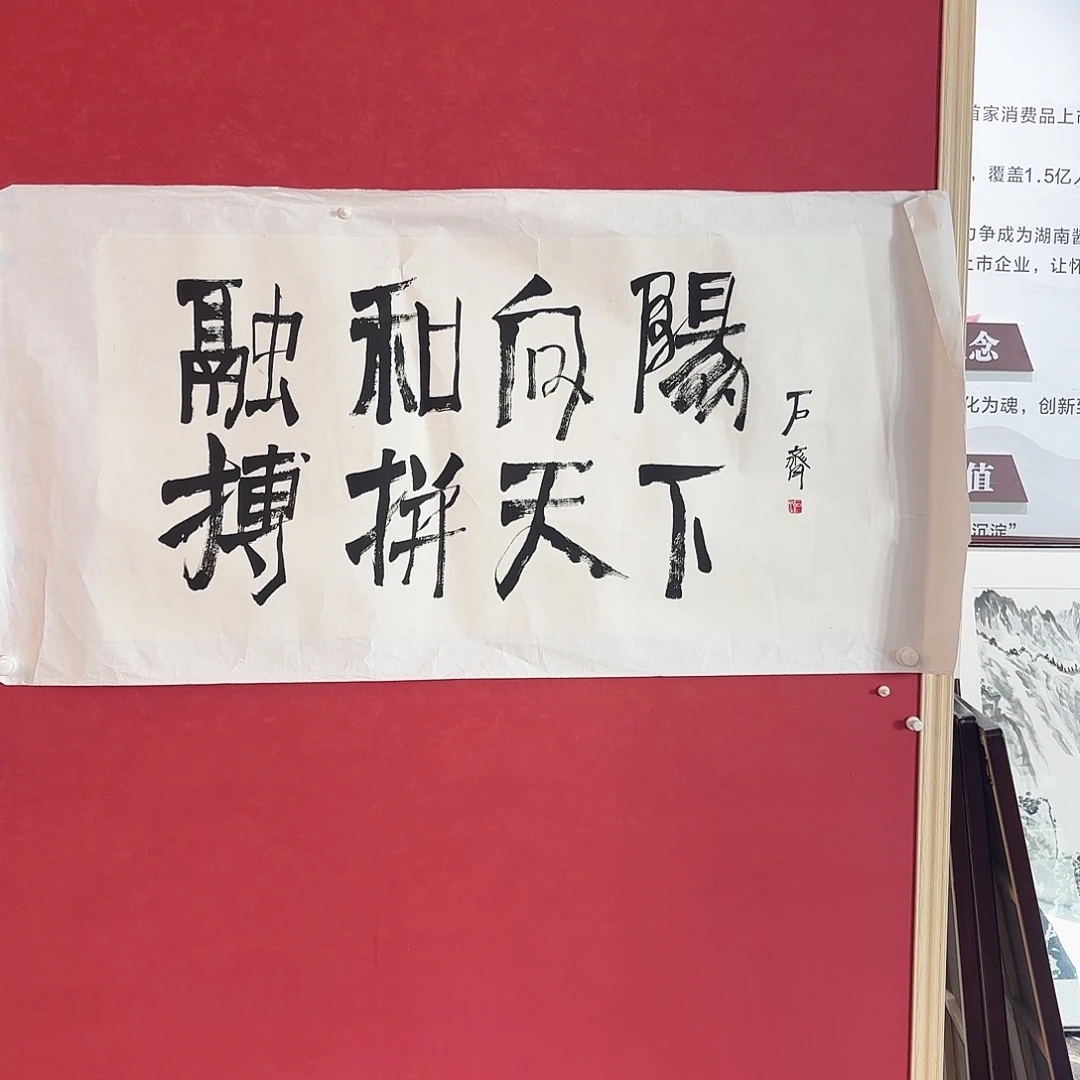 融和向陽
搏拼天下
石齊
首家消费品上市
，覆盖1.5亿人
力争成为湖南酱
上市企业，让怀
念
化为魂，创新
值
沉淀”